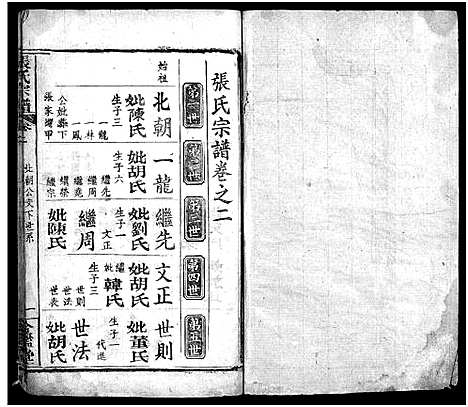 張氏宗譜卷之二
第一世
第二世
第三世
第四世
第五世
始祖
北朝
妣陳氏
生子三
一龍
一林
一鳳
公妣葬下
張家塆甲
一龍
妣胡氏
生子六
繼先
繼周
繼堯
繼榮
繼宗
繼先
妣劉氏
生子一
文正
繼周
妣陳氏
文正
妣胡氏
繼妣韓氏
生子三
世則
世法
世表
世則
妣董氏
生子一
代進
世法
妣胡氏
張氏宗譜
卷二
北朝公支下世系
一